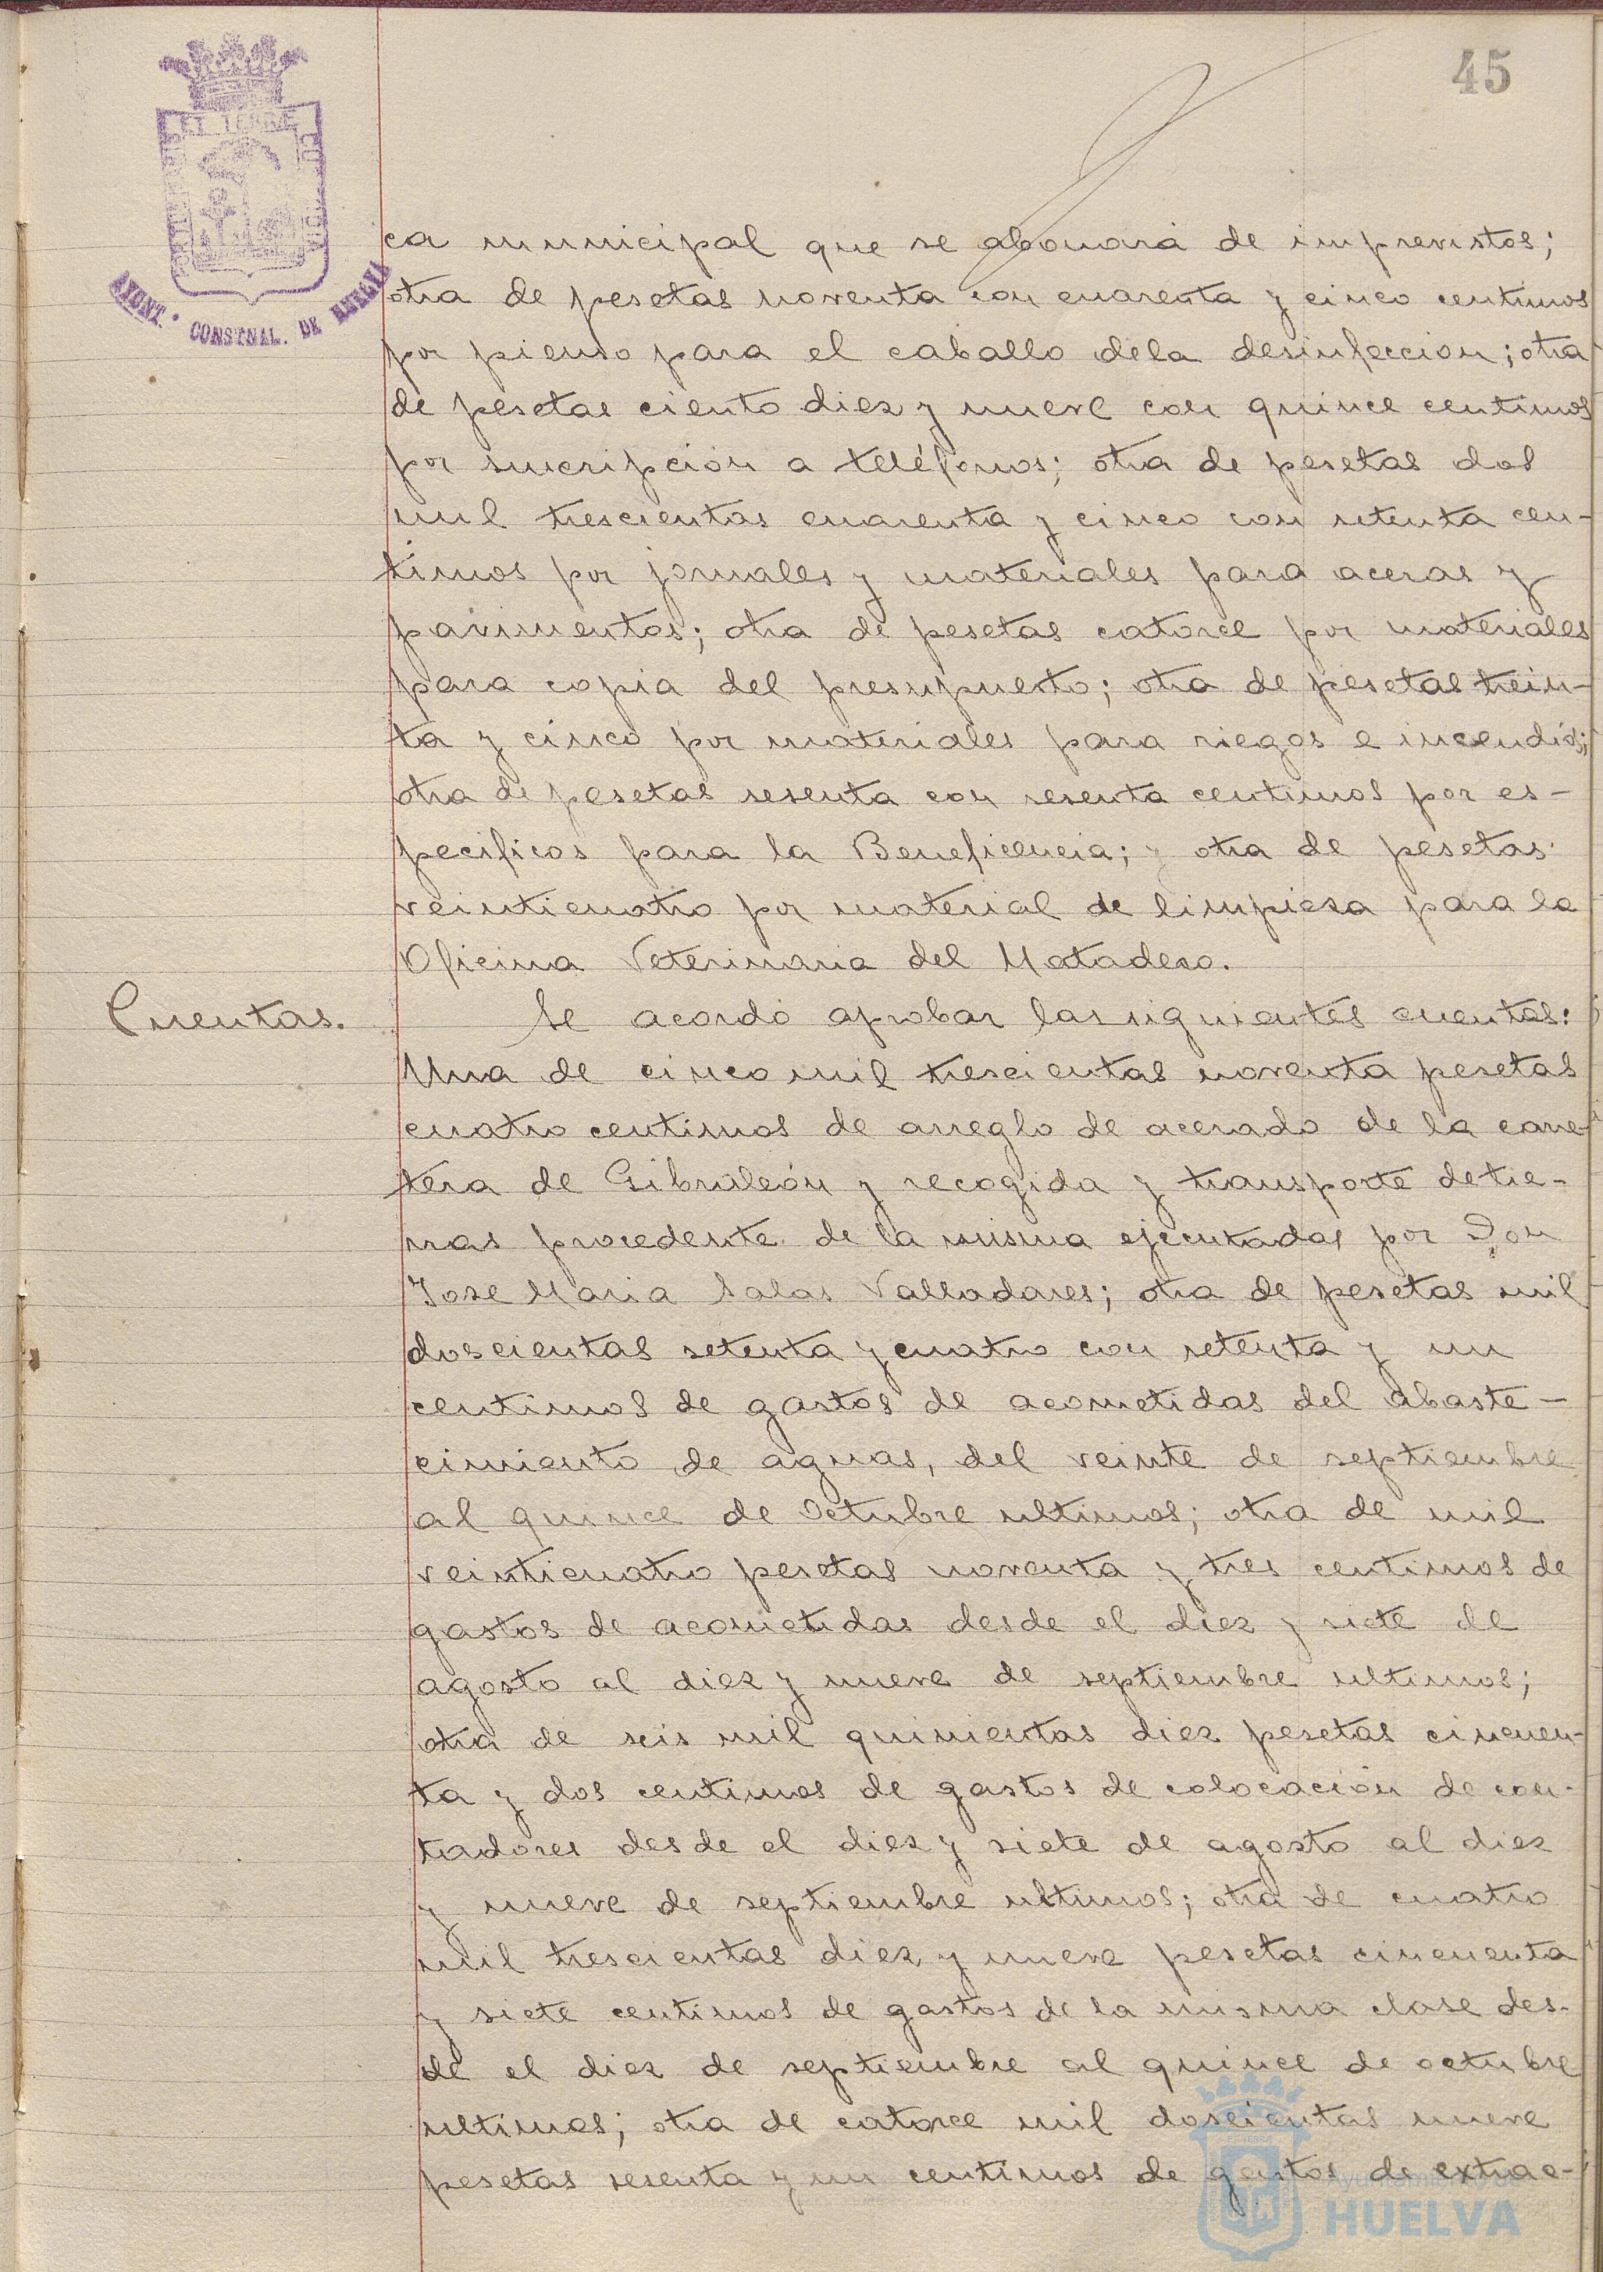 45
PORTUS MARIS ET TERRÆ CUSTODIA
AYUNT. CONSTNAL. DE HUELVA
ca municipal que se abonará de imprevistos;
otra de pesetas noventa con cuarenta y cinco centimos
por pienso para el caballo dela desinfeccion; otra
de pesetas ciento diez y nueve con quince centimos
por suscripción a teléfonos; otra de pesetas dos
mil trescientas cuarenta y cinco con setenta cen-
timos por jornales y materiales para aceras y
pavimentos; otra de pesetas catorce por materiales
para copia del presupuesto; otra de pesetas trein-
ta y cinco por materiales para riegos e incendios;
otra de pesetas sesenta con sesenta centimos por es-
pecificos para la Beneficencia; y otra de pesetas
veinticuatro por material de limpieza para la
Oficina Veterinaria del Matadero.
Cuentas.
Se acordó aprobar las siguientes cuentas:
Una de cinco mil trescientas noventa pesetas
cuatro centimos de arreglo de acerado de la carre-
tera de Gibraleón y recogida y transporte de tie-
rras procedente de la misma ejecutadas por Don
Jose Maria Salas Valladares; otra de pesetas mil
doscientas setenta y cuatro con setenta y un
centimos de gastos de acometidas del abaste-
cimiento de aguas, del veinte de septiembre
al quince de Octubre ultimos; otra de mil
veinticuatro pesetas noventa y tres centimos de
gastos de acometidas desde el diez y siete de
agosto al diez y nueve de septiembre ultimos;
otra de seis mil quinientas diez pesetas cincuen-
ta y dos centimos de gastos de colocación de con-
tadores desde el diez y siete de agosto al diez
y nueve de septiembre ultimos; otra de cuatro
mil trescientas diez y nueve pesetas cincuenta
y siete centimos de gastos de la misma clase des-
de el diez de septiembre al quince de octubre
ultimos; otra de catorce mil doscientas nueve
pesetas sesenta y un centimos de gastos de extrac-
Ayuntamiento de
HUELVA